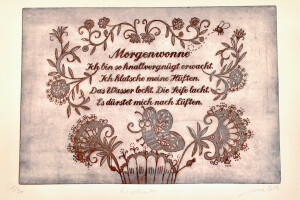 Morgenwonne
Ich bin so knallvergnügt erwacht.
Ich klatsche meine Hüften.
Das Wasser lockt. Die Seife lacht.
Es dürstet mich nach Lüften.